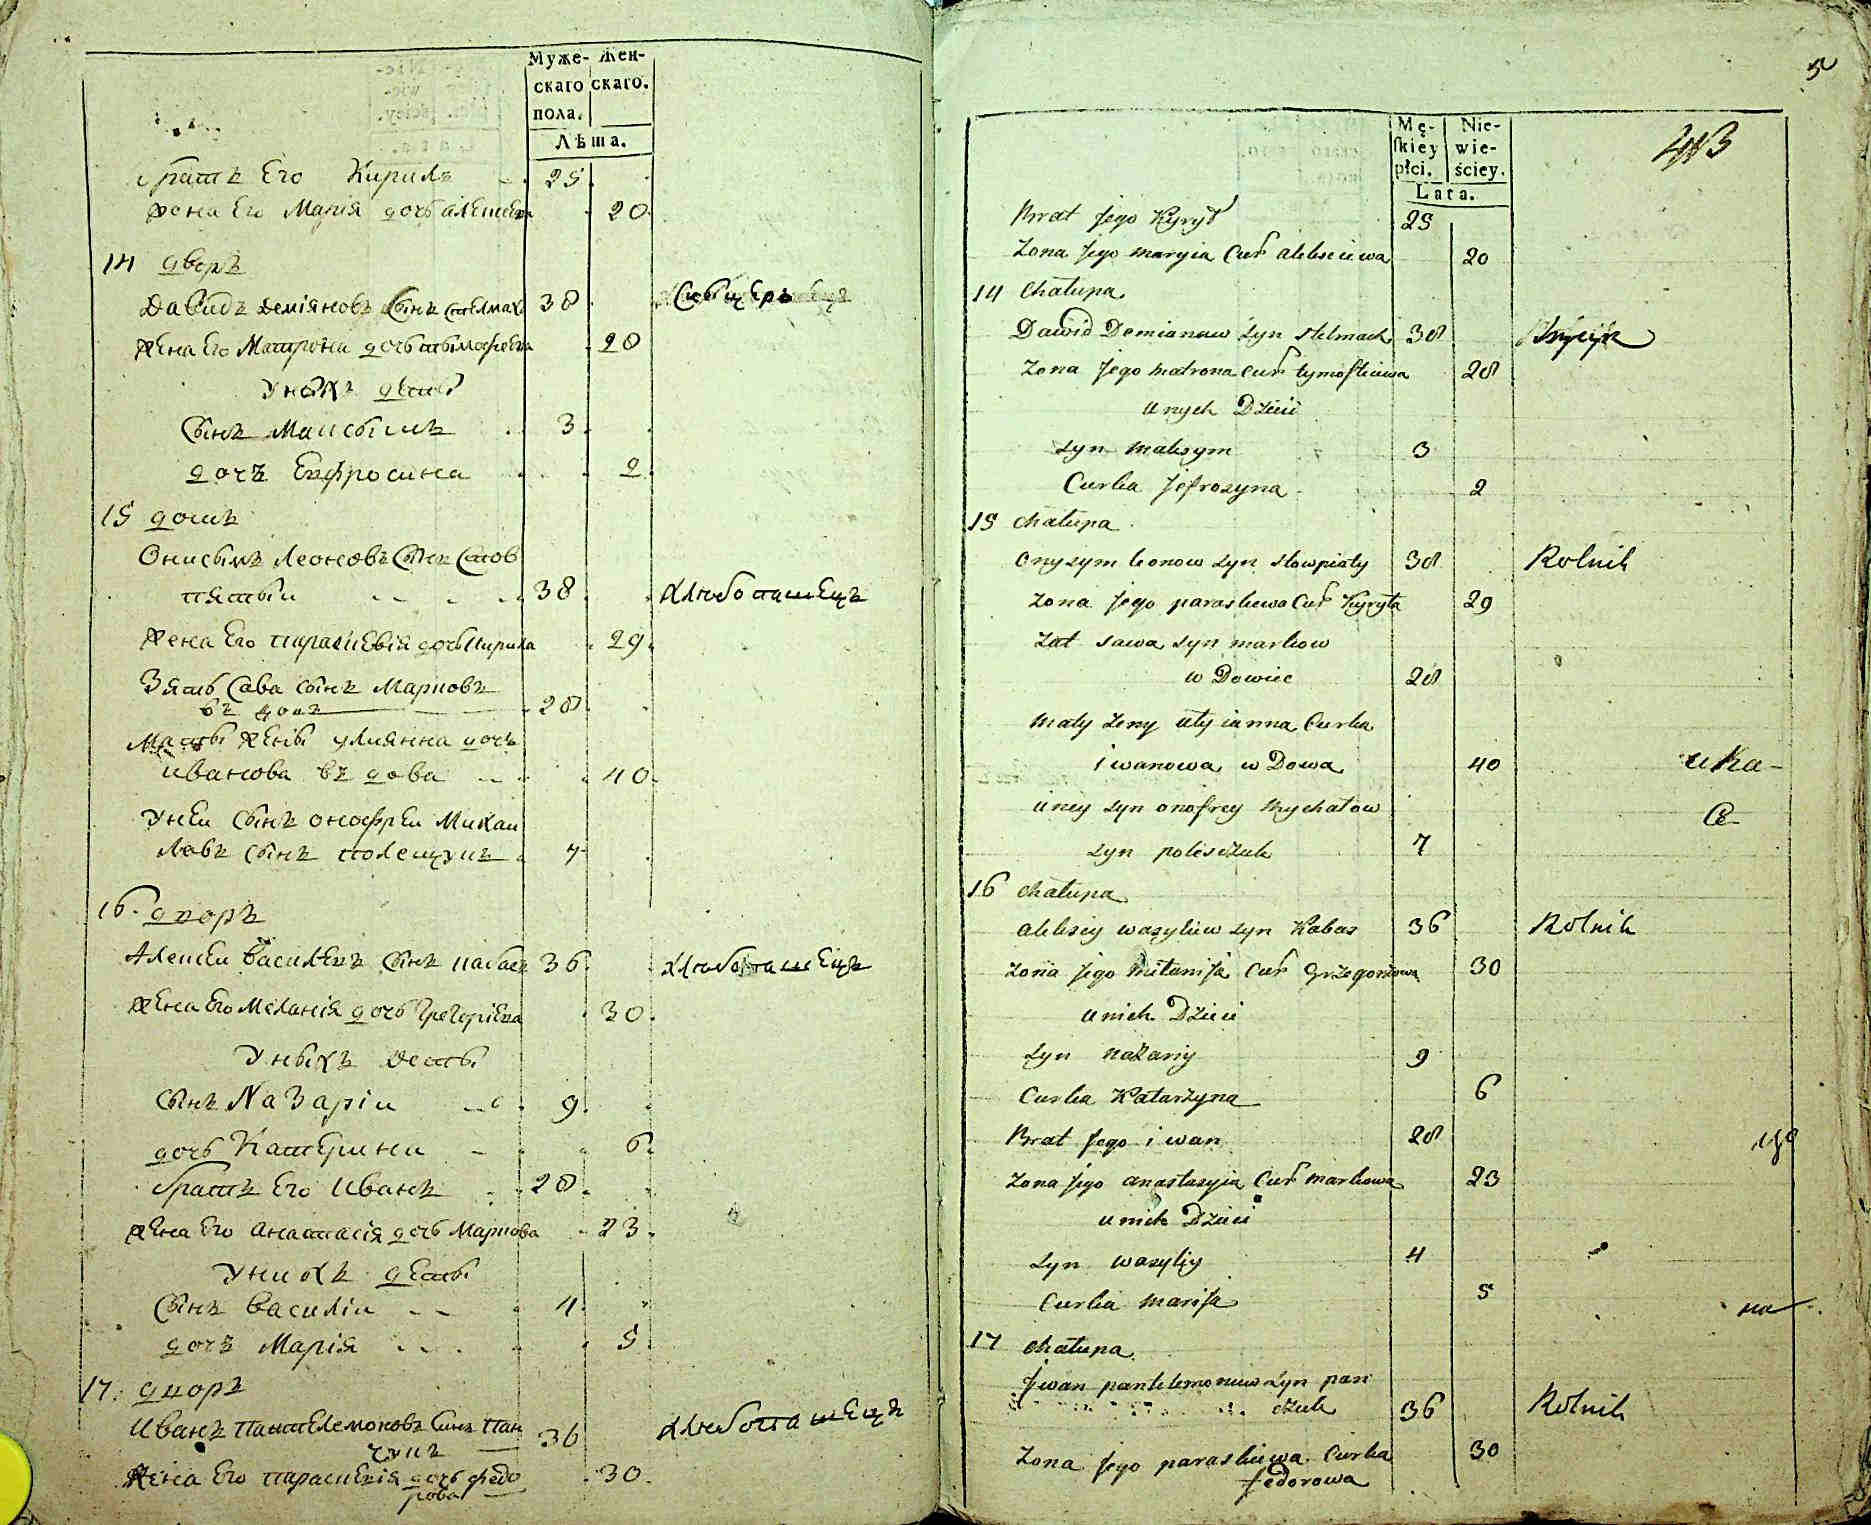 Муже- Жен-
скаго скаго.
пола.
Лѣта.
братъ Его Кирилъ 25
жена Его Марія дочь алексѣева 20
14 дворъ
Давидъ Деміяновъ сынъ стелмах 38
жена Его Матрона дочь тымофѣева 28
Уныхъ дети
сынъ Максымъ 3
дочъ Евфросина 2
15 домъ
Онисымъ Леоновъ сынъ Стов
пятый 38 хлѣбопашецъ
жена Его параскевія дочь Кирила 29
Зять Сава сынъ Марковъ
28
Мать жены улиянна дочъ
иванова въ дова 40
Унеи сынъ онофреи Михаи
ловъ сынъ полещукъ 7
16. дворъ
Алексеи василевъ сынъ кабасъ 36 хлѣбопашецъ
жена Его Меланія дочь Грегоріева 30
Уныхъ дети
сынъ Назаріи 9
дочь Катерина 6
братъ Его Иванъ 28
жена Его анастасія дочь Маркова 23
Унихъ дети
сынъ василіи 4
дочъ Марія 5
17. дворъ
Иванъ пантелемоновъ сынъ пан
чукъ 36 хлѣбопашецъ
жена Его параскевія дочь федо
рова 30
5
Mę- Nie-
skiey wie-
płci. ściey.
Lata.
413
Brat jego Kyrył 25
Zona jego maryia Cur alekseiewa 20
14 Chałupa
Dawid Demianow syn stelmach 38
Zona jego matrona Cur tymofiiewa 28
unych Dzieci
syn maksym 3
Curka jefrozyna 2
15 chałupa
onysym leonow syn stowpiaty 38 Rolnik
zona jego paraskiewa Cur Kyryła 29
zat sawa syn markow
w Dowiec 28
maty zeny ulyianna Curka
iwanowa w Dowa 40
uney syn onofrey mychałow
syn polesczuk 7
16 chałupa
aleksiey wasyliew syn Kabas 36 Rolnik
zona jego miłanija Cur Grzegorzowa 30
unich Dzieci
syn nazariy 9
Curka Katarzyna 6
Brat jego iwan 28
zona jego anastasyia Cur markowa 23
unich Dzieci
syn wasyliy 4
Curka marija 5
17 chałupa
jwan pantelemonow syn pan
czuk 36 Rolnik
zona jego paraskiewa Curka
fedorowa 30